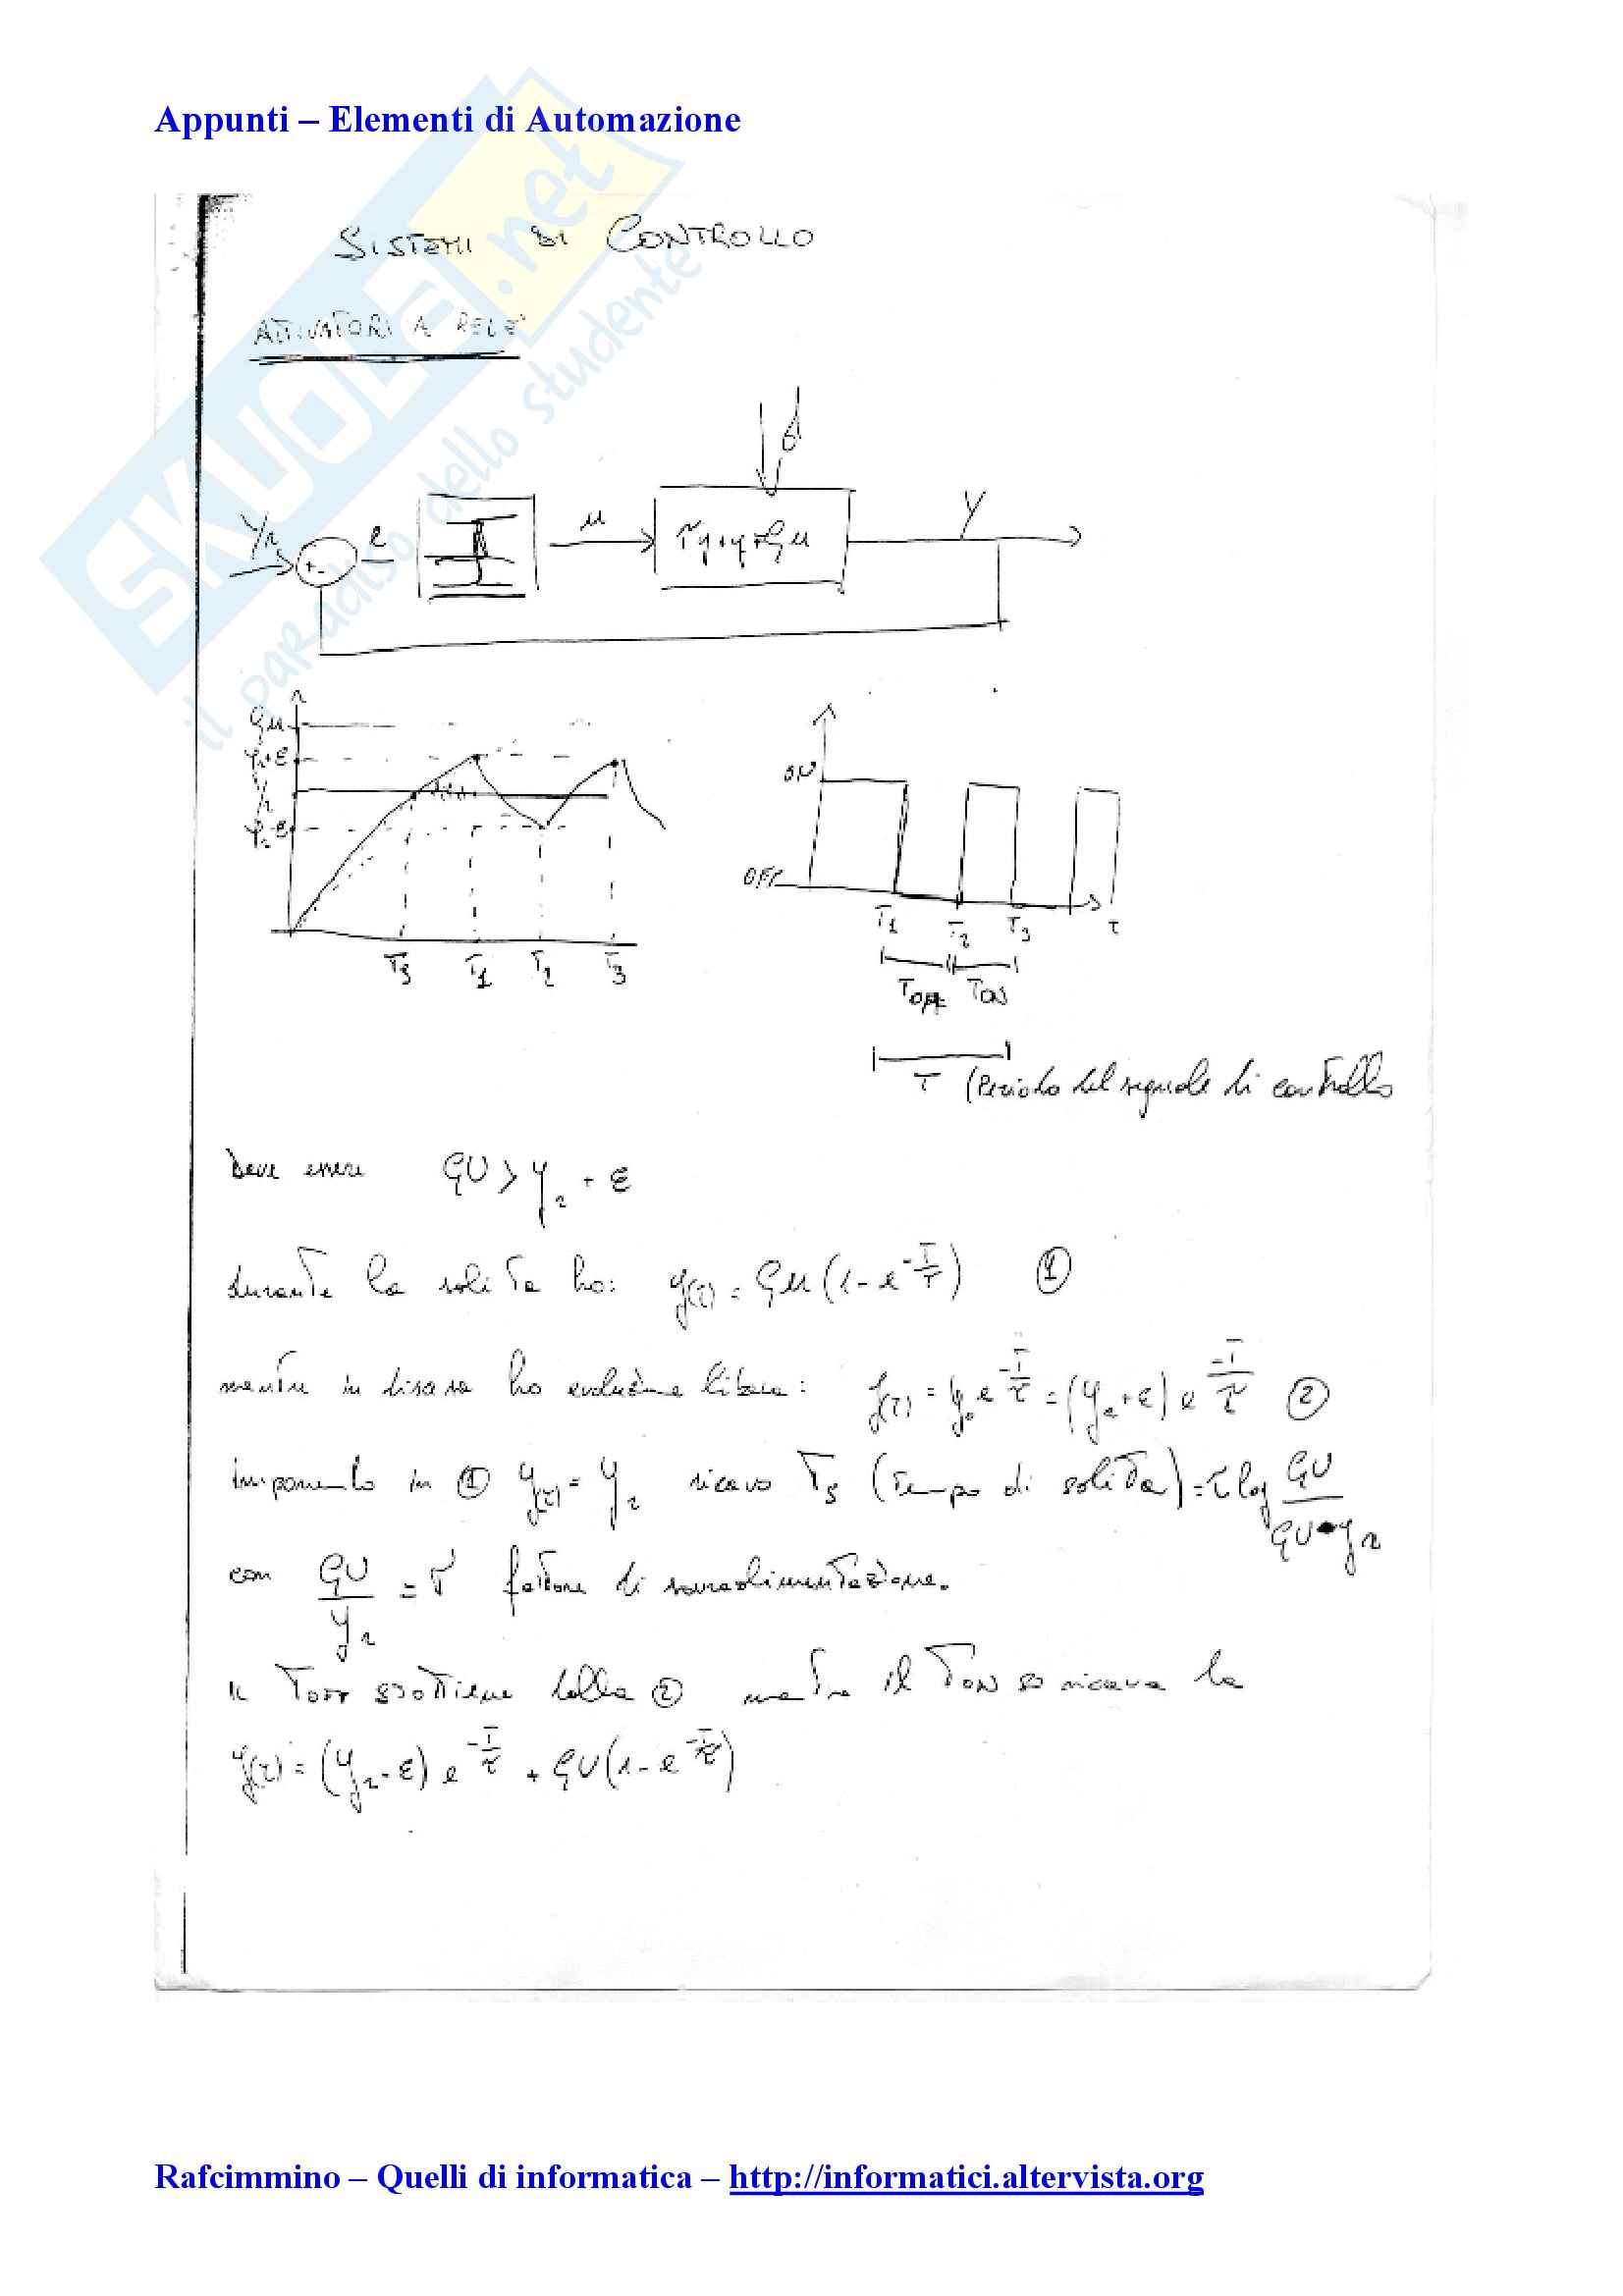 Appunti – Elementi di Automazione
SKUOLA.net
il paradiso dello studente
SISTEMI DI CONTROLLO
ATTIVATORI A RELE'
d
Yr
+ -
e
u
Y
Gu
yr+ε
yr
yr-ε
Ts T1 T2 T3
ON
OFF
T1 T2 T3 t
TOFF TON
T (Periodo del segnale di controllo
Deve essere GU > yr + ε
durante la salita ho: y(t) = Gu (1 - e^(-t/τ)) ①
mentre in discesa ho evoluzione libera: y(t) = y0 e^(-t/τ) = (yr + ε) e^(-t/τ) ②
imponendo in ① y(t) = yr ricavo Ts (tempo di salita) = τ log GU/(GU - yr)
con GU/yr = fattore di sovralimentazione.
Il TOFF si ottiene dalla ② mentre il TON si ricava da
y(t) = (yr - ε) e^(-t/τ) + GU (1 - e^(-t/τ))
Rafcimmino – Quelli di informatica – http://informatici.altervista.org